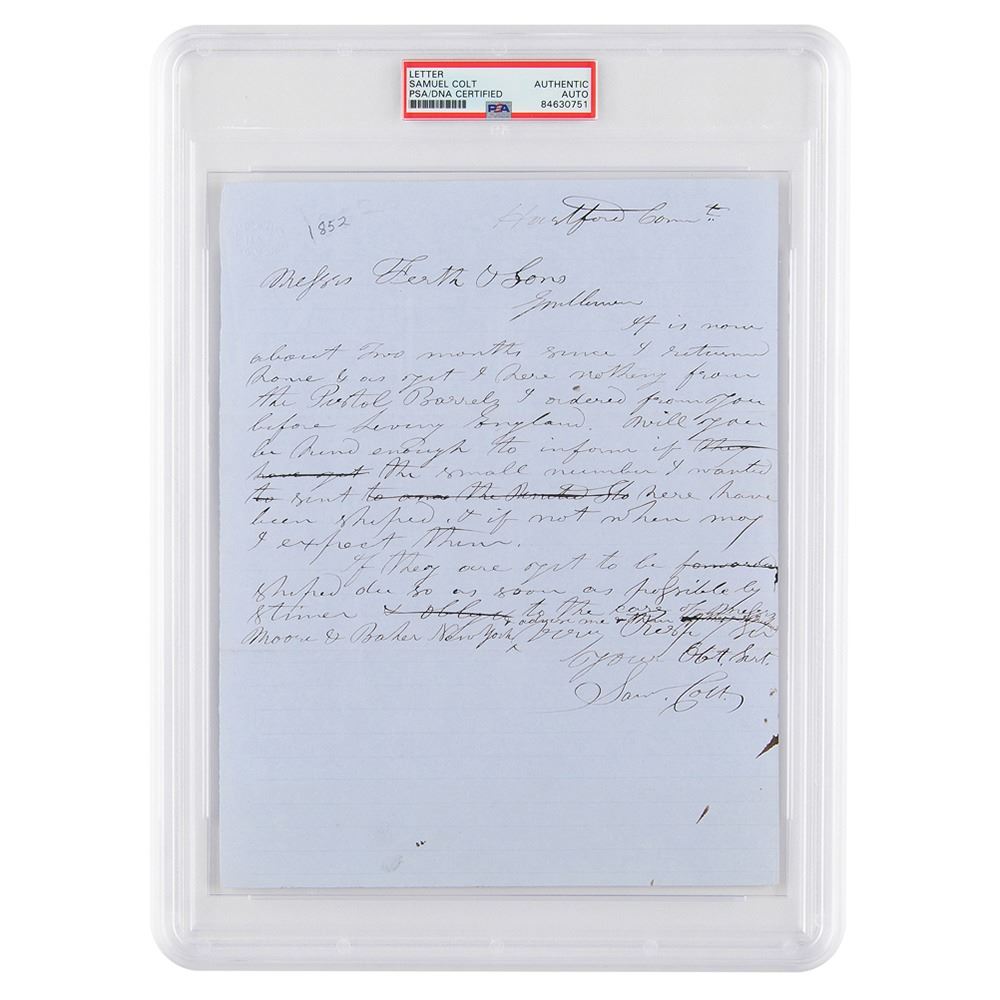 LETTER
SAMUEL COLT
PSA/DNA CERTIFIED
AUTHENTIC
AUTO
84630751
PSA
1852
Hartford Connt.
Messrs Ferth & Sons
Gentlemen
It is now
about Two months since I returned
home & as yet I here nothing from
the Pistol Barrels I ordered from you
before leving England. Will you
be kind enough to inform if they
have yet the small number I wanted
to sent the United Sta here have
been shiped, & if not when may
I expect them.
If they are yet to be forwarded
shiped du so as soon as possible by
stimer & oblige to the care of Messrs
Moore & Baker New York, & advise me
very Resp
Your Obt. Sert.
Sam. Colt.